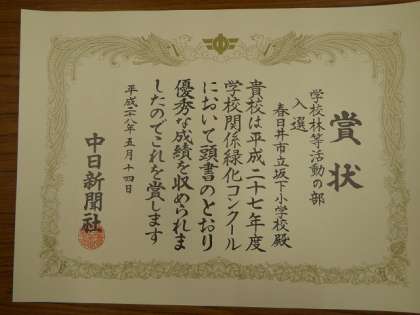 賞状
学校林等活動の部
入選
春日井市立坂下小学校殿
貴校は平成二十七年度
学校関係緑化コンクール
において頭書のとおり
優秀な成績を収められま
したのでこれを賞します
平成二八年五月十四日
中日新聞社